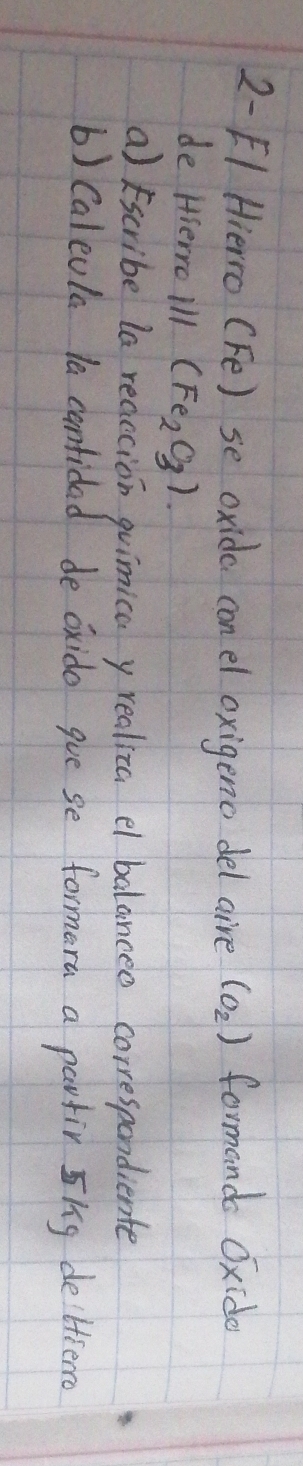 2- El Hierro (Fe) se oxida con el oxigeno del aire (O₂) formando Óxido
de Hierro III (Fe₂O₃).
a) Escribe la reacción química y realiza el balanceo correspondiente
b) Calcula la cantidad de óxido que se formara a partir 5 Kg de Hierro